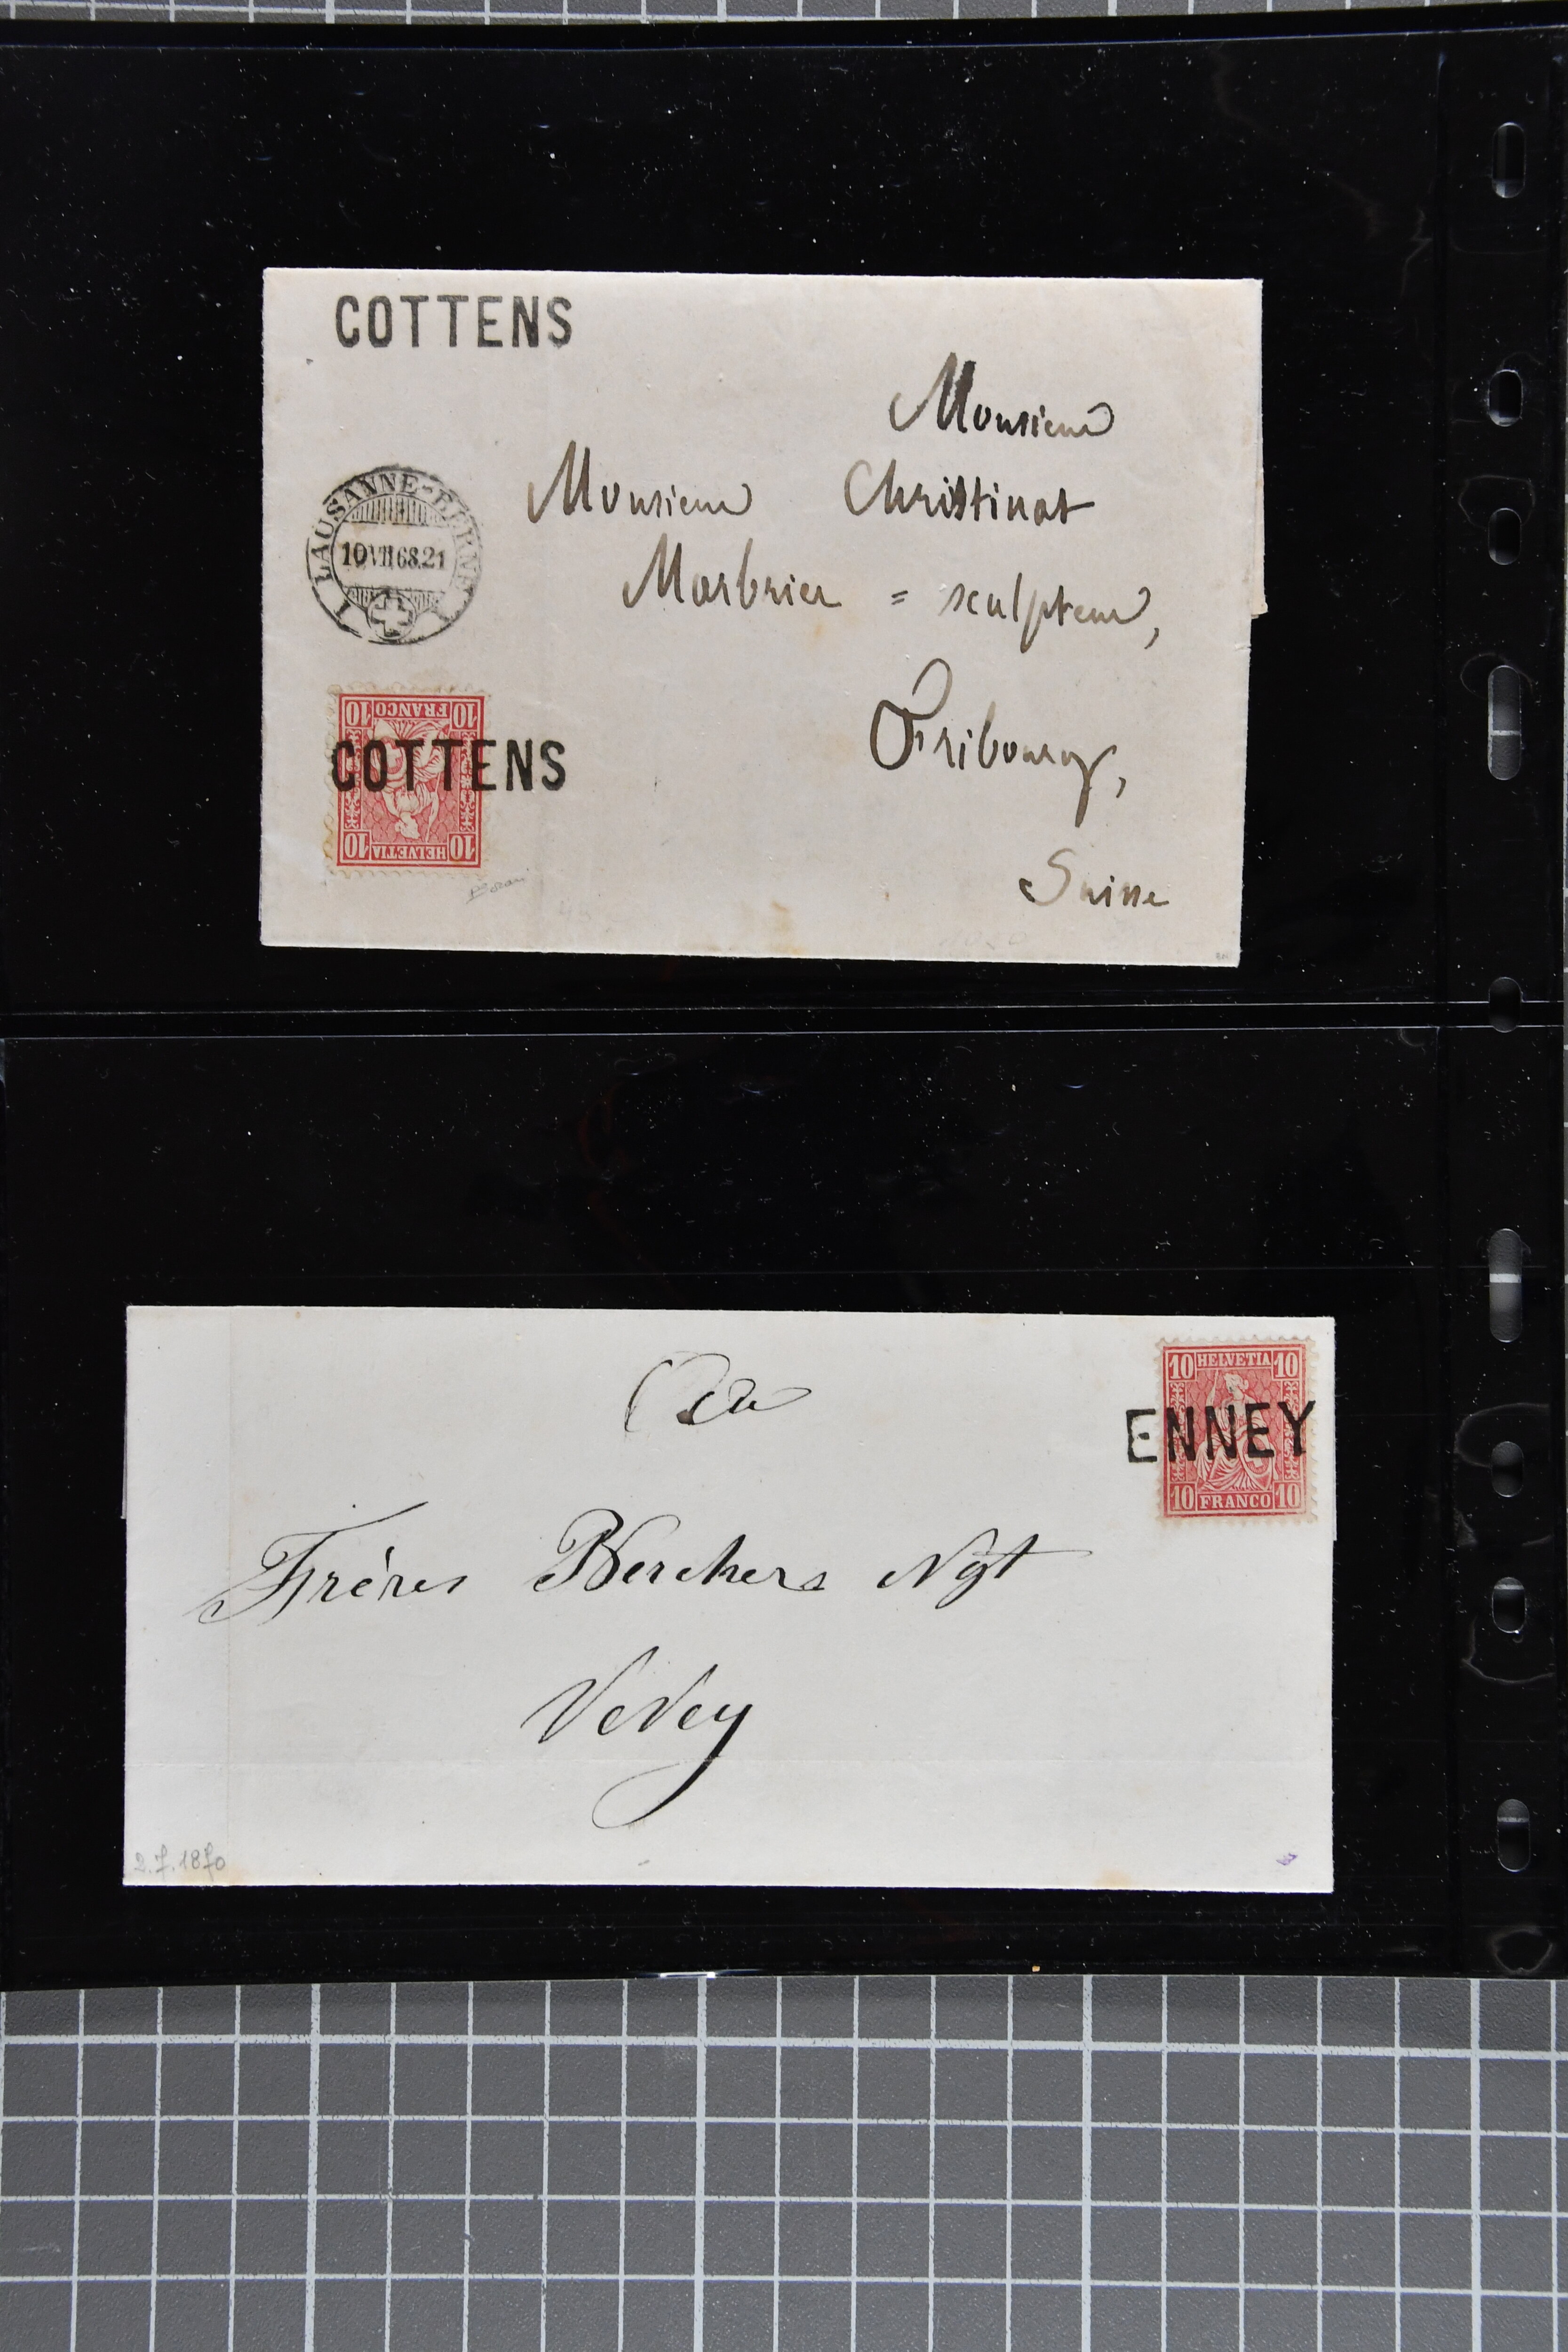 COTTENS
Monsieur
Monsieur Christinat
LAUSANNE-BERNE
10 VII 68.21
Marbrier = sculpteur,
10 FRANCO 10
COTTENS
10 HELVETIA 10
Fribourg,
Suisse
10 HELVETIA 10
ENNEY
10 FRANCO 10
Frères Berchers Ngt
Vevey
2.7.1870